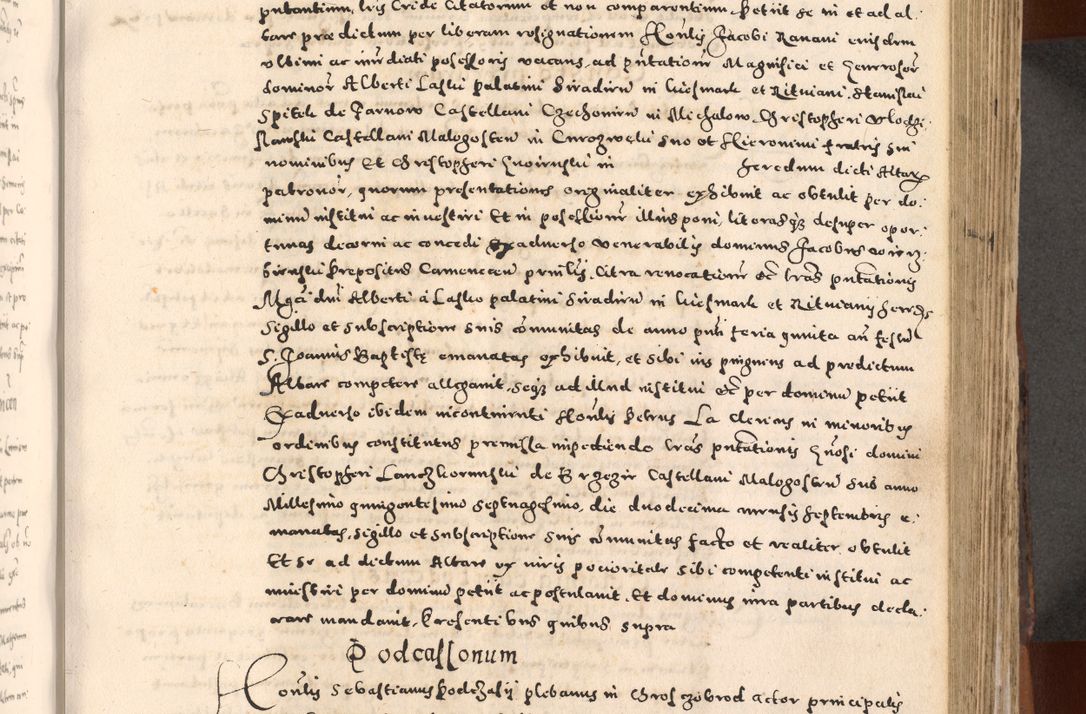 putantium, lris Cride Citatorum et non comparentium petiit se in et ad al-
tare prædictum per liberam resignationem Honlis Jacobi Ranani eiusdem
vltimi ac immediati possessoris vacans, ad pntationem Magnifici et Generosor
dominor Alberti Laskii palatini Siradien in kiesmark et Ritwiani, Stanislai
Spitek de Jarnow Castellani Czechonien in Michalow, Christopheri Wlodzi-
slawski Castellani Malogosten in Curozweki suo et Hieronimi fratris sui
nominibus et Christopheri in heredum dicti Altar
patronor, quorum presentationes originaliter exhibuit ac obtulit per do-
minum institui ac investiri Et in possessionem illius poni, literasqz desuper opor-
tunas decerni ac concedi Exaduerso venerabilis dominus Jacobus
Prepositus Camenecen priuilis, Citra reuocationem etc lras pntationis
Mgci dni Alberti à Lasko palatini Siradien in kiesmark et Ritwiany
Sigillo et subscriptione suis comunitas de anno pnti feria quinta an festum
S. Joannis Baptistę emanatas exhibuit, et sibi ius pinguius ad predictum
Altare competere allegauit, seqz ad illud institui etc per dominum petiit
Exaduerso ibidem incontinenti Honlis Petrus La clericus in minoribus
ordinibus constitutus premissa inpediendo lras pntationis Gnosi domini
Christopheri Lanczkorunskii de Brzezie Castellani Malogosten sub anno
Millesimo quingentesimo septuagesimo, die duodecima mensis Septembris e-
manatas, sigillo et subscriptione suis comunitas facto et realiter obtulit
Et se ad dictum Altare ex iuris potioritate sibi competenti institui ac
inuestiri per dominum petiit ac postulauit, Et dominus iura partibus decla-
rare mandauit, Presentibus quibus supra
Podcassonum
Honlis Sebastianus Podczasii plebanus in Chrosczobrod actor principalis